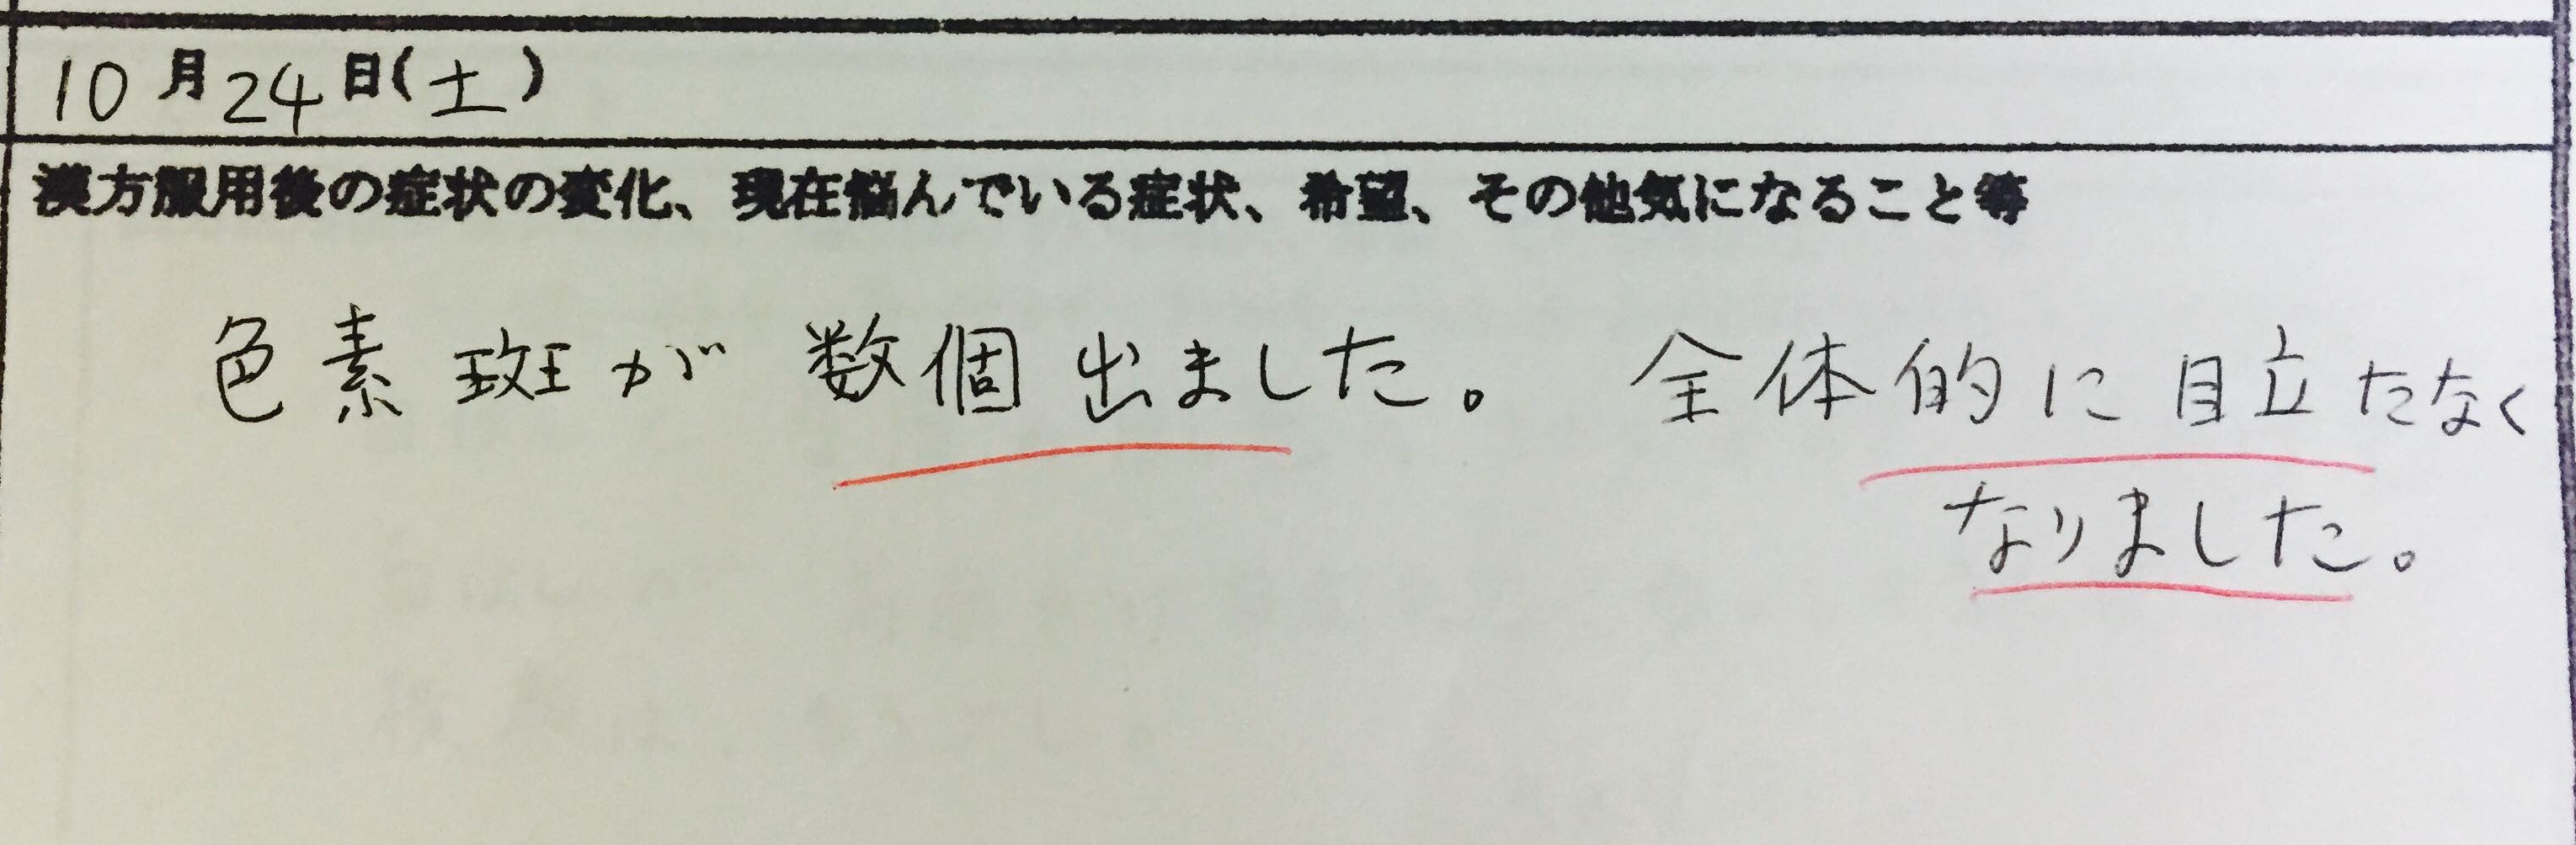 10月24日(土)
漢方服用後の症状の変化、現在悩んでいる症状、希望、その他気になること等
色素斑が数個出ました。全体的に目立たなく
なりました。